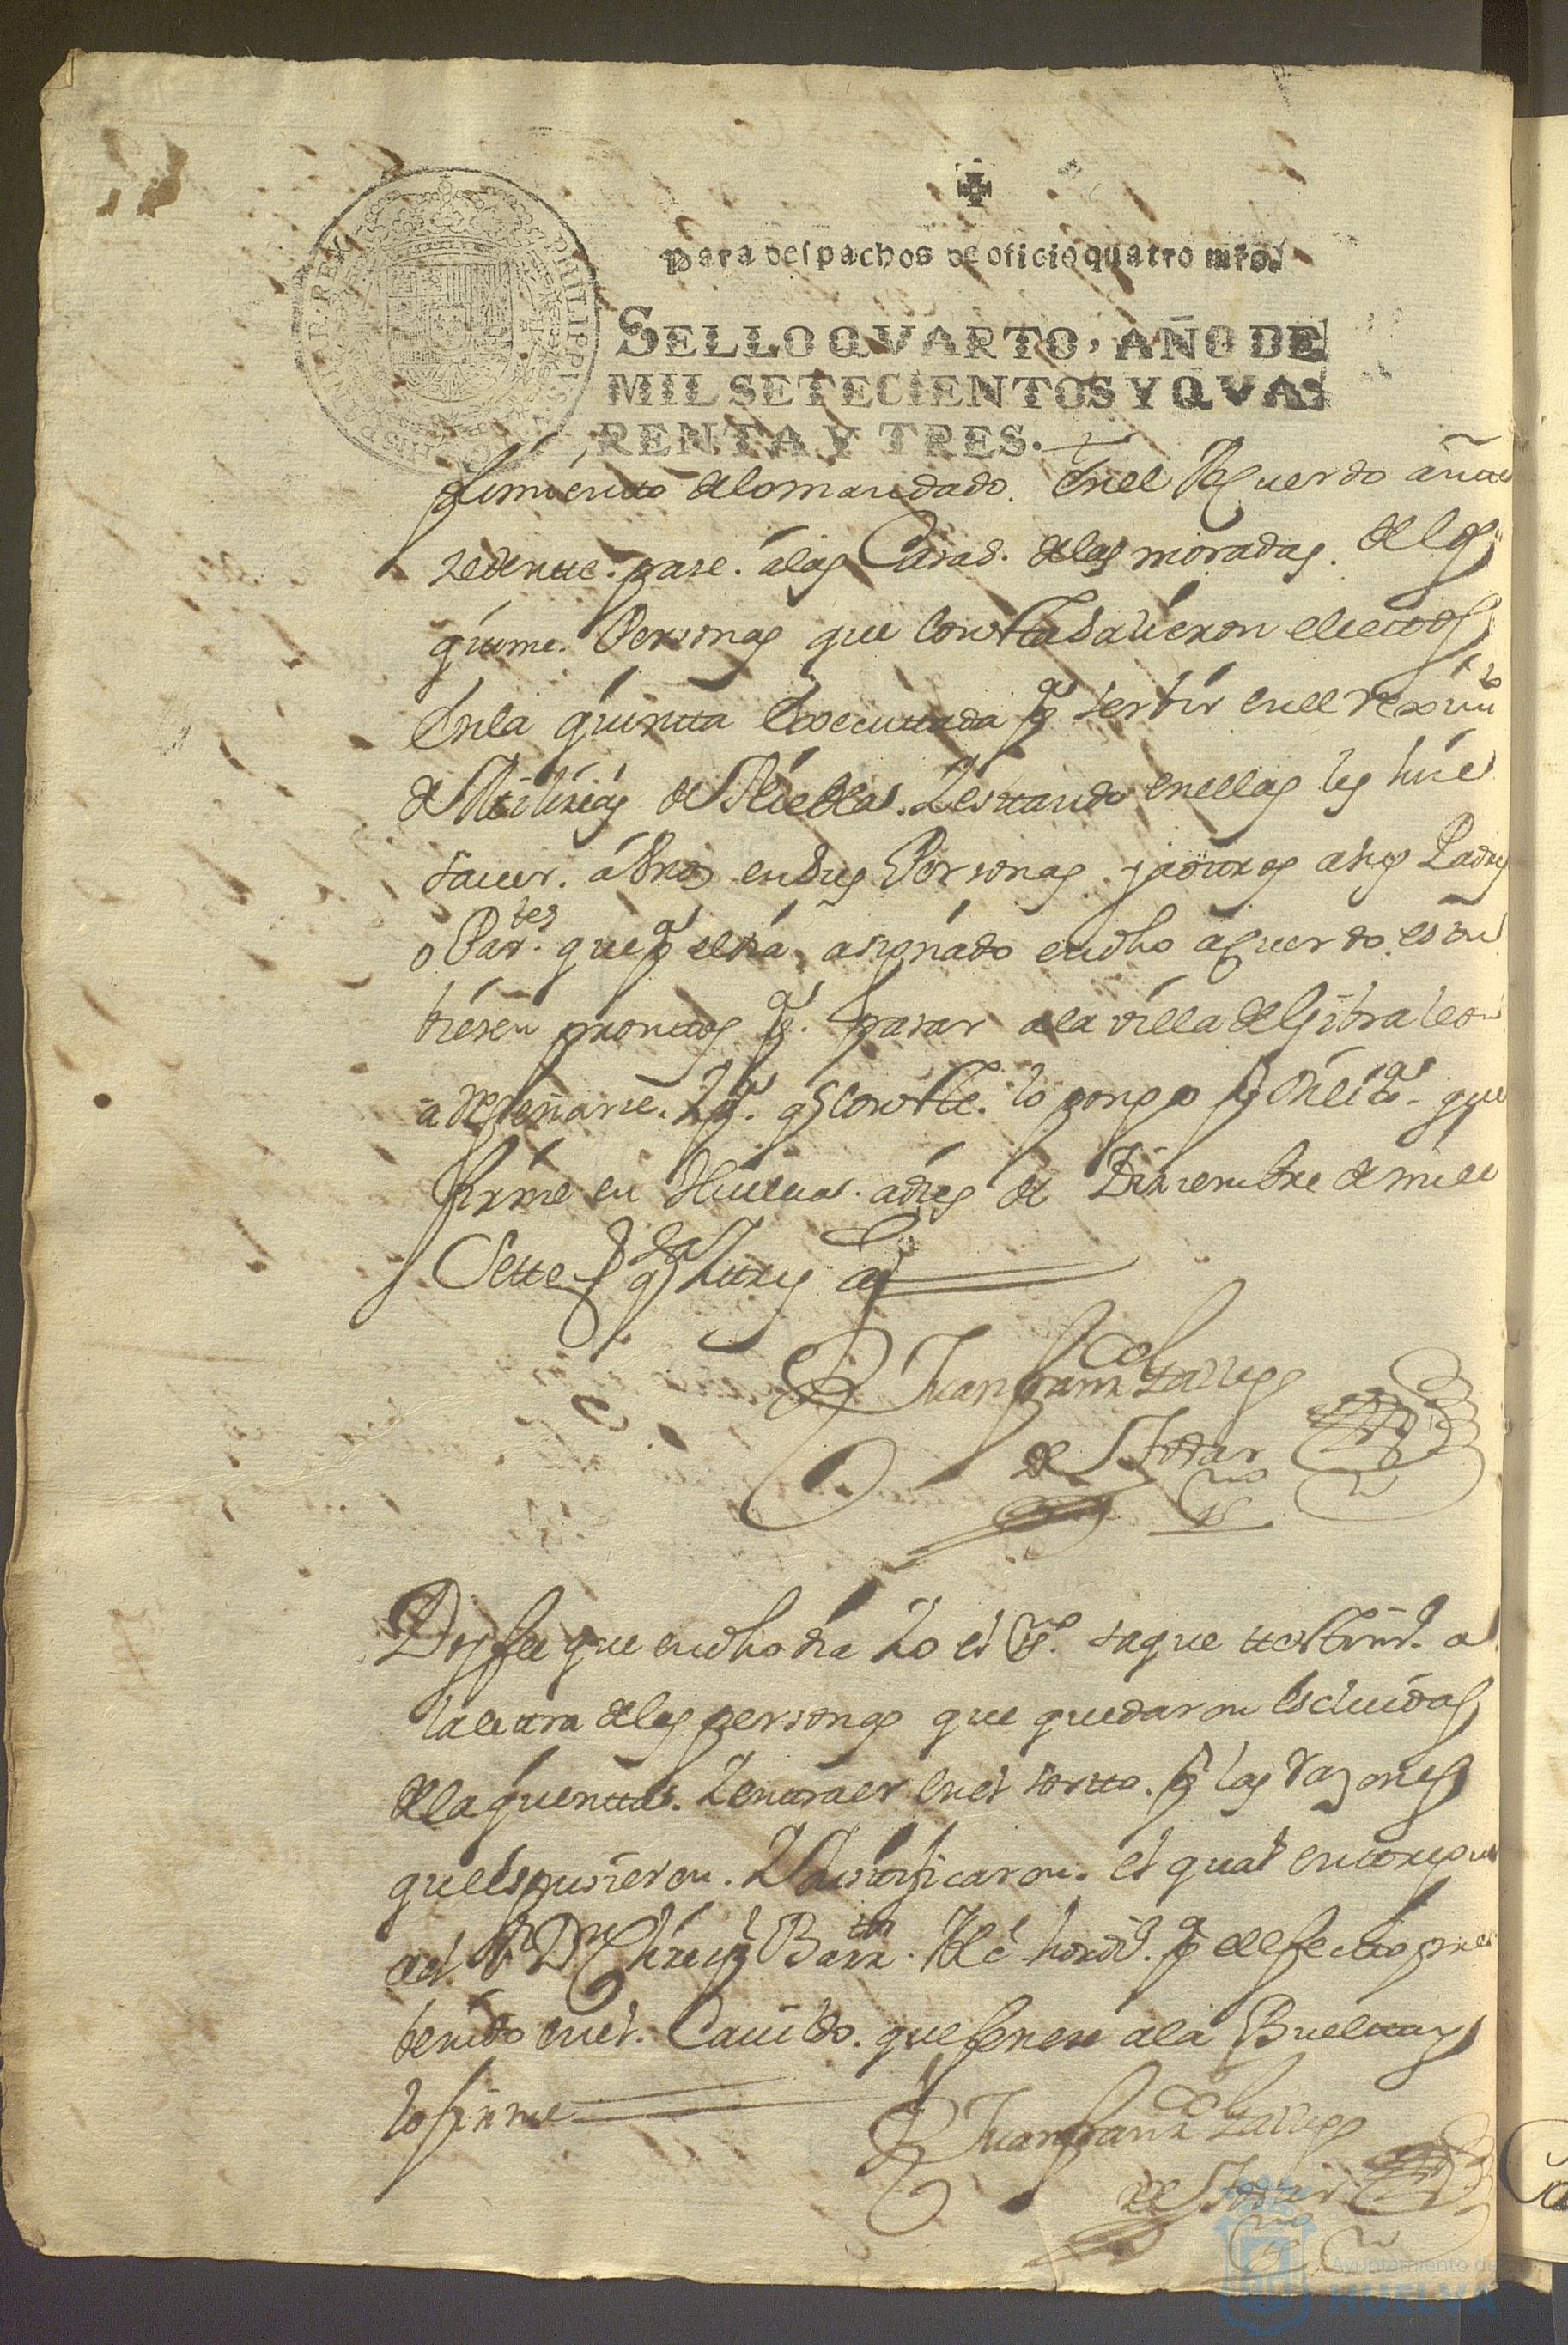 PHILIPPUS V D G HISPANIAR REX
Para despachos de oficio quatro mrs.
SELLO QVARTO, AÑO DE
MIL SETECIENTOS Y QVA
RENTA Y TRES.
plimiento de lo mandado. En el Acuerdo antte
zedente. pase. a las Casas. de las moradas. de los
quinse. Personas que Constta salieron electtos
En la quintta Executtada pª servir en el reximtº
de Milizias de Niebla. Y esttando en ellas les hise
sauer. a Unos en sus Personas y a ottros a sus Padres
o Parttes. que pª el dia asignado en dho acuerdo esttu
biesen promttos pª. pasar a la villa de Gibraleon
a reseñarse. Y pª. q Constte. lo pongo pr Dilixª que
firme en Huelva. a dies de Diziembre de mill
Sette qª y ttres as
Juan Franco Gallego
de Tobar
Doy fee que en dho dia Yo el essº. saque testtimº a
la lettra de las personas que quedaron escluidas
de la quintta. Y enttraer en el sortto. pr las razones
que espusieron. Y Justtificaron. el qual enttregue
al Sr Dn Chrispl Barttn. Alcde hordº. pª el efectto pre
benido en el. Cauildo. que fenese a la Bueltta y
lo firme
Juan Franco Gallego
de Tobar
Ayuntamiento de
HUELVA